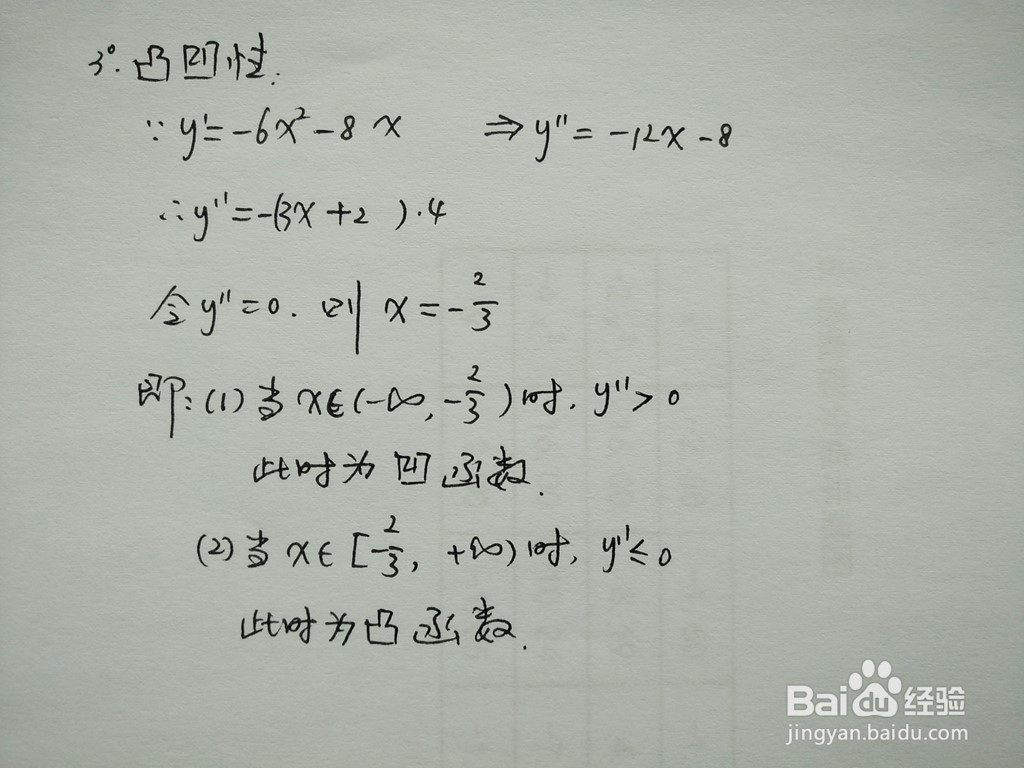 3°. 凸凹性.
∵ y' = -6x² - 8x ⇒ y'' = -12x - 8
∴ y'' = -(3x + 2)·4
令 y'' = 0. 则 x = -2/3
即: (1) 当 x∈(-∞, -2/3) 时, y'' > 0
此时为凹函数.
(2) 当 x∈[-2/3, +∞) 时, y'' ≤ 0
此时为凸函数.
Baidu 经验
jingyan.baidu.com